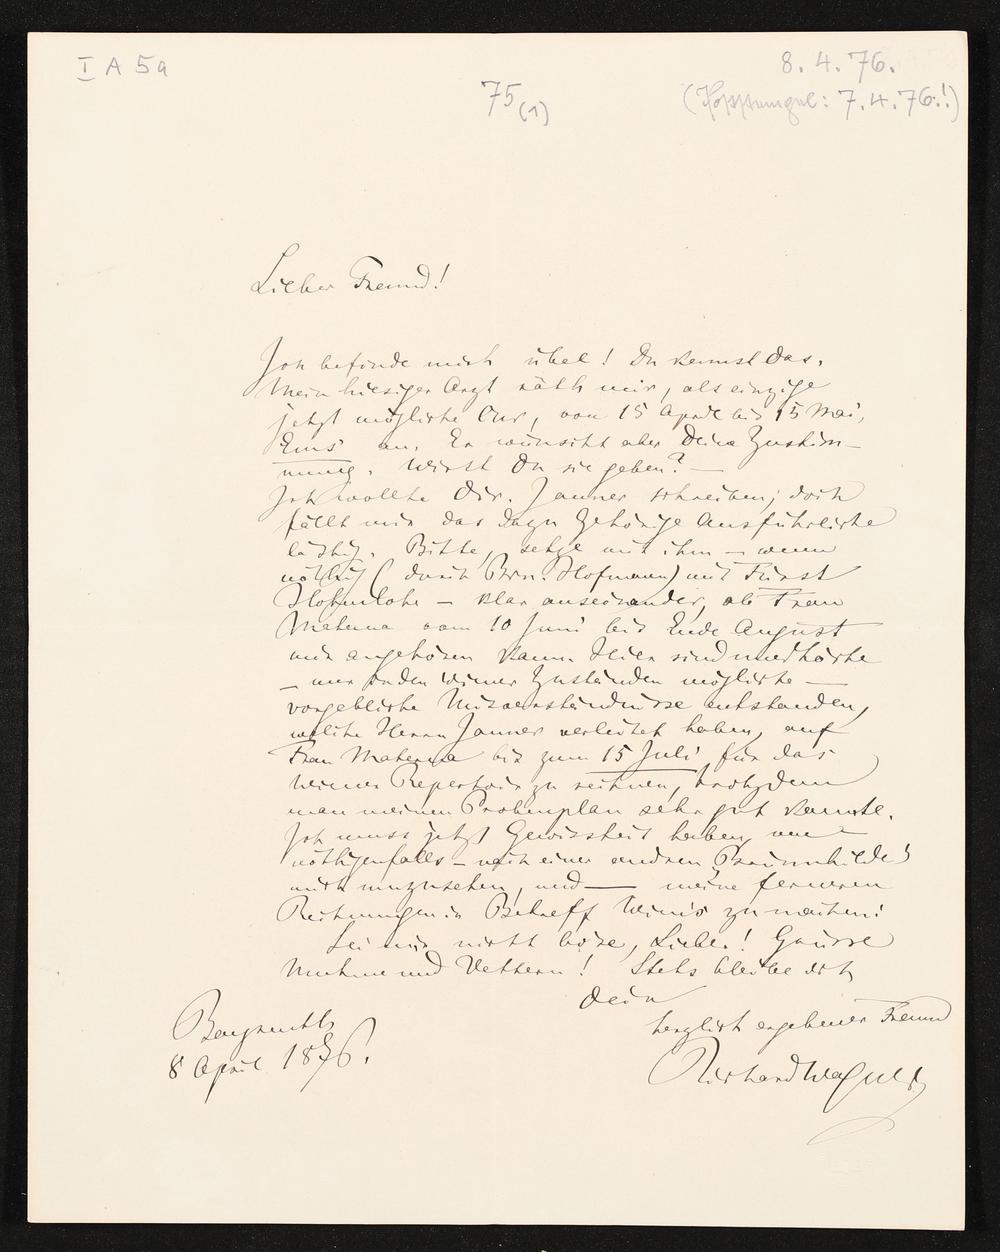 I A 5a
8. 4. 76.
75 (1)
(Poststempel: 7.4.76.!)
Lieber Freund!
Ich befinde mich übel! Du kennst das.
Mein hiesiger Arzt räth mir, als einzige
jetzt mögliche Cur, vom 15 April bis 15 Mai,
Ems an. Er wünscht aber Deine Zustim-
mung. Wirst Du sie geben? —
Ich wollte Dir. Jauner schreiben; doch
fällt mir das dazu gehörige Ausführliche
lästig. Bitte, setze mit ihm – wenn
nöthig (durch Brn. Hofmann) mit Fürst
Hohenlohe – klar auseinander, ob Frau
Materna vom 10 Juni bis Ende August
mir angehören kann. Hier sind unerhörte
– nur in den Wiener Zuständen mögliche —
vorgebliche Misverständnisse entstanden,
welche Herrn Jauner verleitet haben, auf
Frau Materna bis zum 15 Juli für das
Wiener Repertoir zu rechnen, trotzdem
man meinen Probenplan sehr gut kannte.
Ich muss jetzt Gewissheit haben, um –
nöthigenfalls – nach einer andren Brünnhilde
mich umzusehen, und — meine ferneren
Rechnungen in Betreff Wien's zu machen!
Sei mir nicht böse, Lieber! Grüsse
Muhme und Vettern! Stets bleibe ich
Dein
herzlich ergebener Freund
Richard Wagner
Bayreuth
8 April 1876.